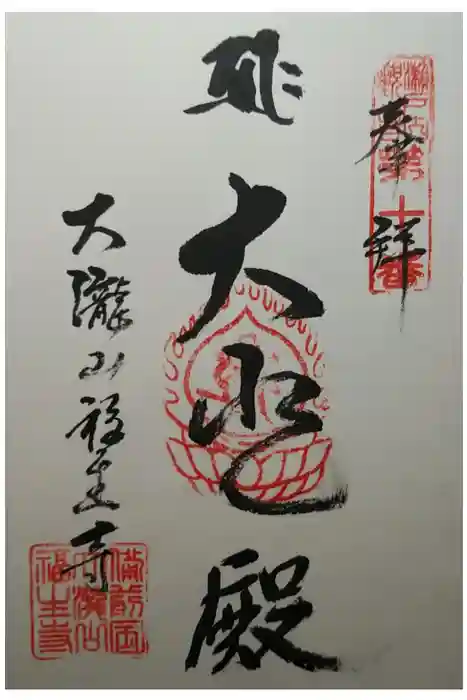 奉拝
第十番
大悲殿
大瀧山福生寺
備前国
大瀧山
福生寺